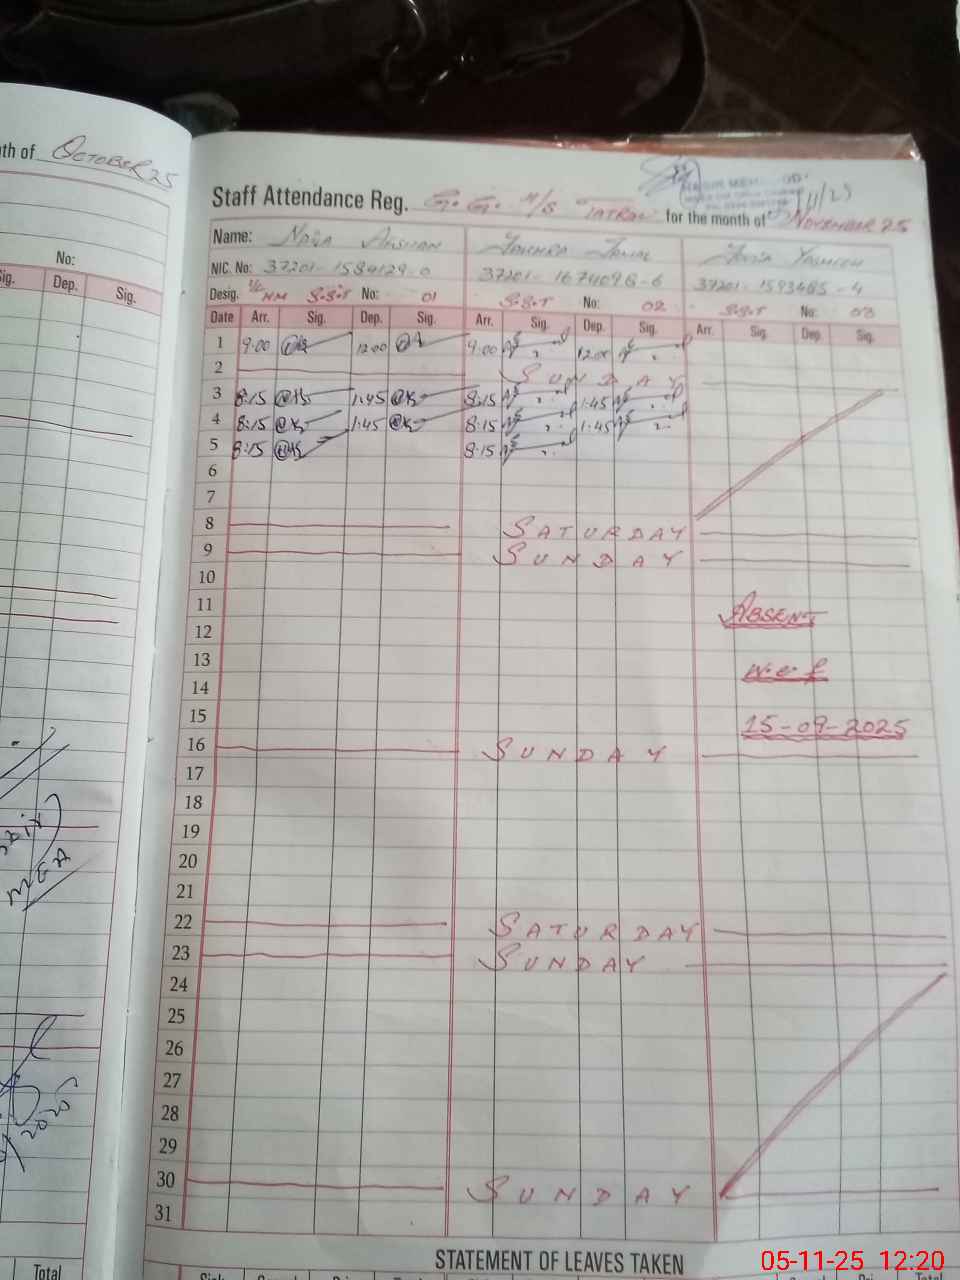 nth of OCTOBER 25
No:
Sig. Dep. Sig.
Staff Attendance Reg. G. G. H/S "TATRAL" for the month of NOVEMBER 25
Name: NAZIA
NIC. No: 37201-1584129-0 37201-1674096-6 37201-1593465-4
Desig. I/C HM S.S.T No: 01 S.S.T No: 02 S.S.T No: 03
Date Arr. Sig. Dep. Sig. Arr. Sig. Dep. Sig. Arr. Sig. Dep. Sig.
1 9:00 12:00 9:00 12:00
2 SUNDAY
3 8:15 1:45 8:15 1:45
4 8:15 1:45 8:15 1:45
5 8:15 8:15
6
7
8 SATURDAY
9 SUNDAY
10
11 ABSENT
12
13 w.e.f
14
15 15-09-2025
16 SUNDAY
17
18
19
20
21
22 SATURDAY
23 SUNDAY
24
25
26
27
28
29
30 SUNDAY
31
MEA
Total
STATEMENT OF LEAVES TAKEN
05-11-25 12:20